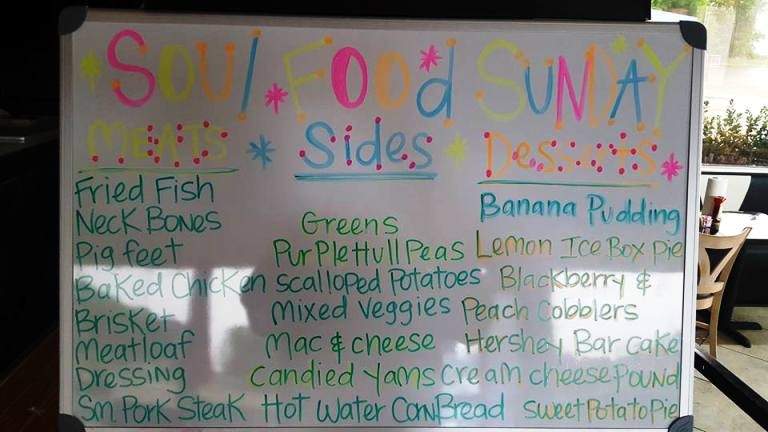 SOUl Food SUNDAY
MEATS
Fried Fish
Neck Bones
Pig feet
Baked Chicken
Brisket
Meatloaf
Dressing
Sm. Pork Steak
Sides
Greens
PurPleHull Peas
Scalloped Potatoes
Mixed Veggies
Mac & cheese
Candied Yams
Hot Water CornBread
Desserts
Banana Pudding
Lemon Ice Box Pie
Blackberry &
Peach Cobblers
Hershey Bar cake
Cream cheese Pound
sweet Potato Pie